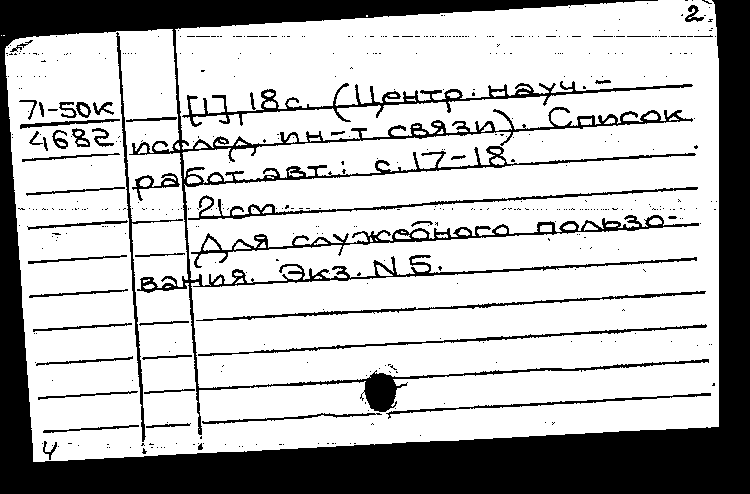 2
71-50К
4682
[1], 18 с. (Центр. науч.-
исслед. ин-т связи). Список
работ авт.: с. 17-18.
21 см.
Для служебного пользо-
вания. Экз. N 5.
4